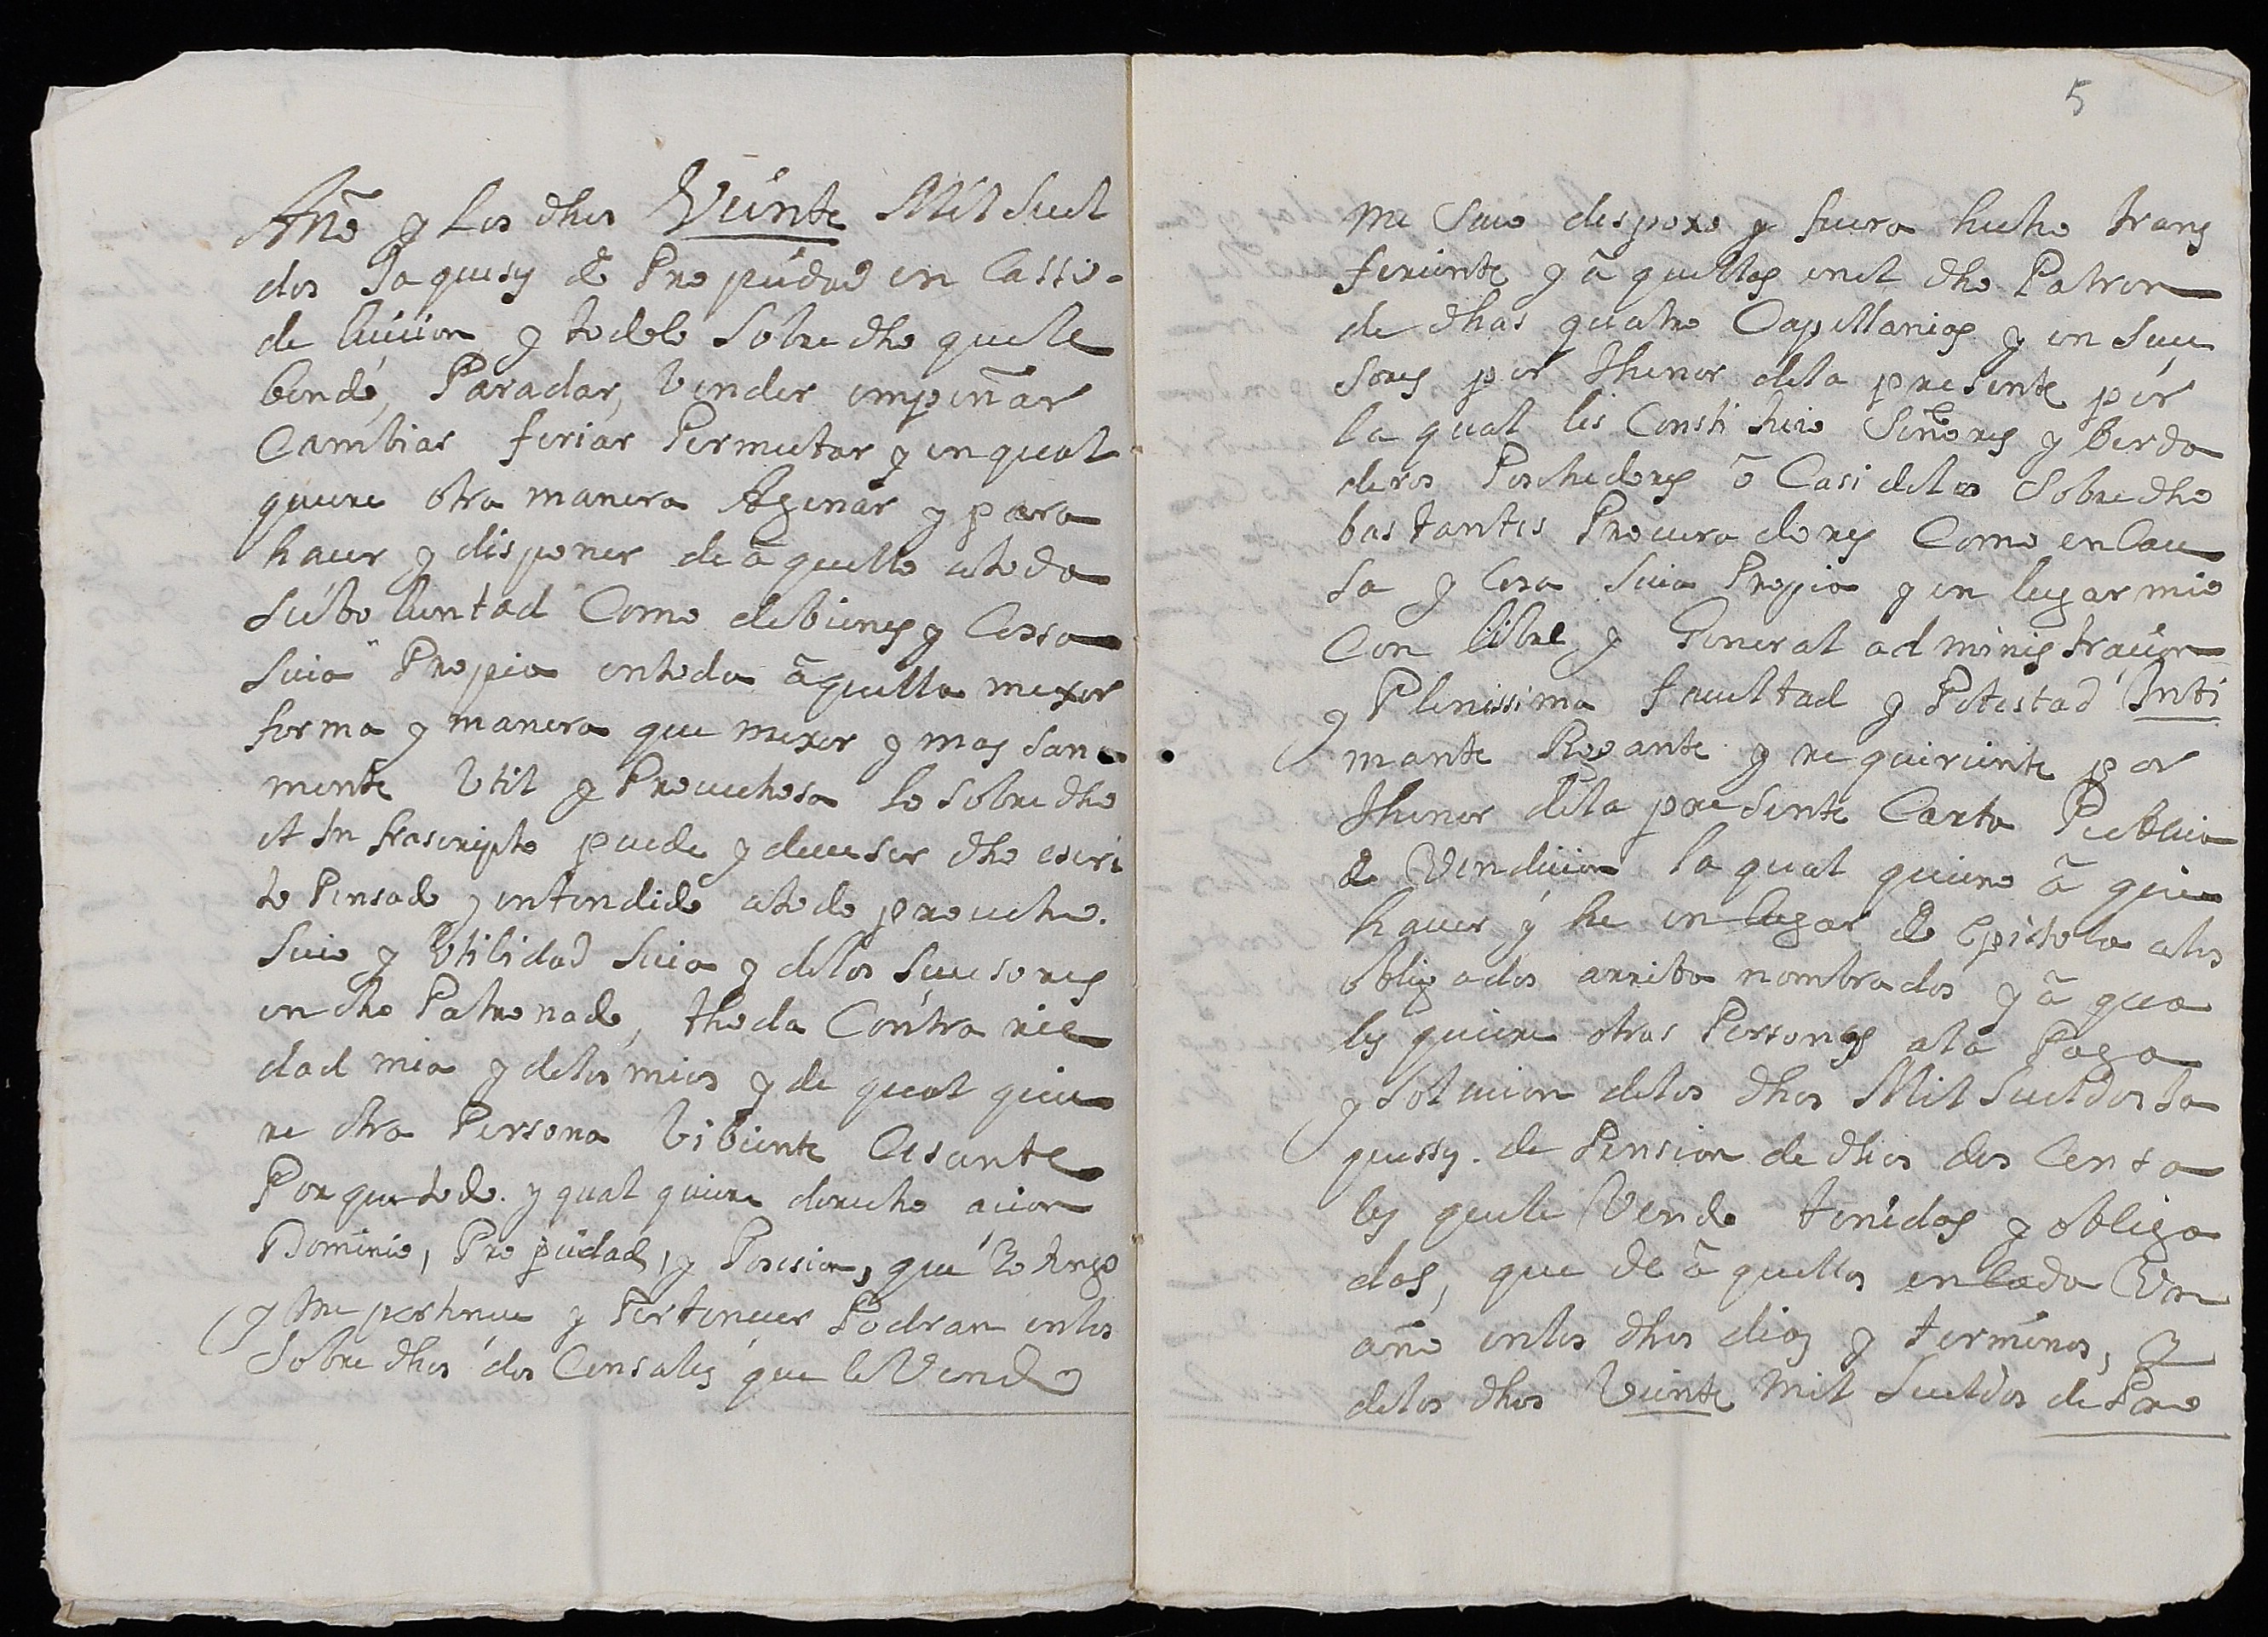 Año y los dhos Veinte Mil Suel
dos Jaquess de Propiedad en Casso
de luicion y todolo Sobre dho quele
bendo, Paradar, Vender empeñar
Cambiar feriar Permutar y en qual
quiere otra manera Agenar y para
hacer y disponer de aquello atoda
Su boluntad Como debienes y Cossa
Suia Propia entoda aquella mexor
forma y manera que mexor y mas Sana
mente Vtil y Prouechosa lo Sobre dho
et Infrascripto puede y deue ser dho escri
to Pensado y entendido atodo prouecho
Suio y Vtilidad Suia y delos Sucesores
en dho Patronado, thoda Contrarie
dad mia y delos mios y de qual quie
re otra Persona Vibiente Cesante
Porque todo y qual quiere derecho acion
Dominio, Propiedad, y Posesion, que Yo tengo
y me pertenece y Pertenecer Podran enlos
Sobre dhos dos Censales que le Vendo
5
me Saco despoxo y fuera hecho trans
feriente y a quellas enel dho Patron
de dhas quatro Capellanias y en Suce
sores por thenor dela presente por
la qual les Constituio Señores y berda
deros Poshedores ō Casi delos Sobre dho
bastantes Procuradores Como en Cau
sa y Cosa Suia Propia y en lugar mio
Con libre y General administracion
y Plenissima facultad y Potestad Inti
mante Rogante y requiriente por
thenor dela presente Carta Publica
de Vendicion la qual quiero ā qui
hauer y he en lugar de Epistola alos
obligados arriba nombrados y ā qua
les quiere otras Personas ala Paga
y Solucion delos dhos Mil Sueldos Ja
quessy. de Pension de dhos dos Censa
les quele Vendo tenidas y obliga
das, que de ā quellos en Cada Vn
año enlos dhos dias y terminos, Y
delos dhos Veinte Mil Sueldos de Pro